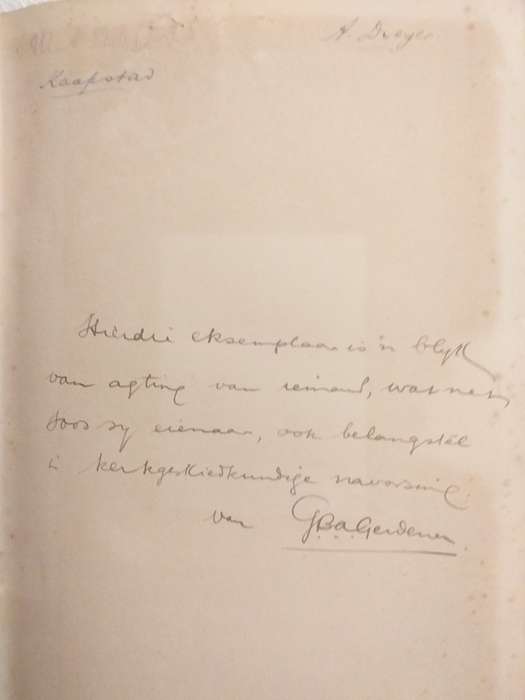 A. Dreyer
Kaapstad
Hierdie eksemplaar is 'n blyk
van agting van iemand, wat net
soos sy eienaar, ook belangstel
in kerkgeskiedkundige navorsing.
van G.B.A. Gerdener.